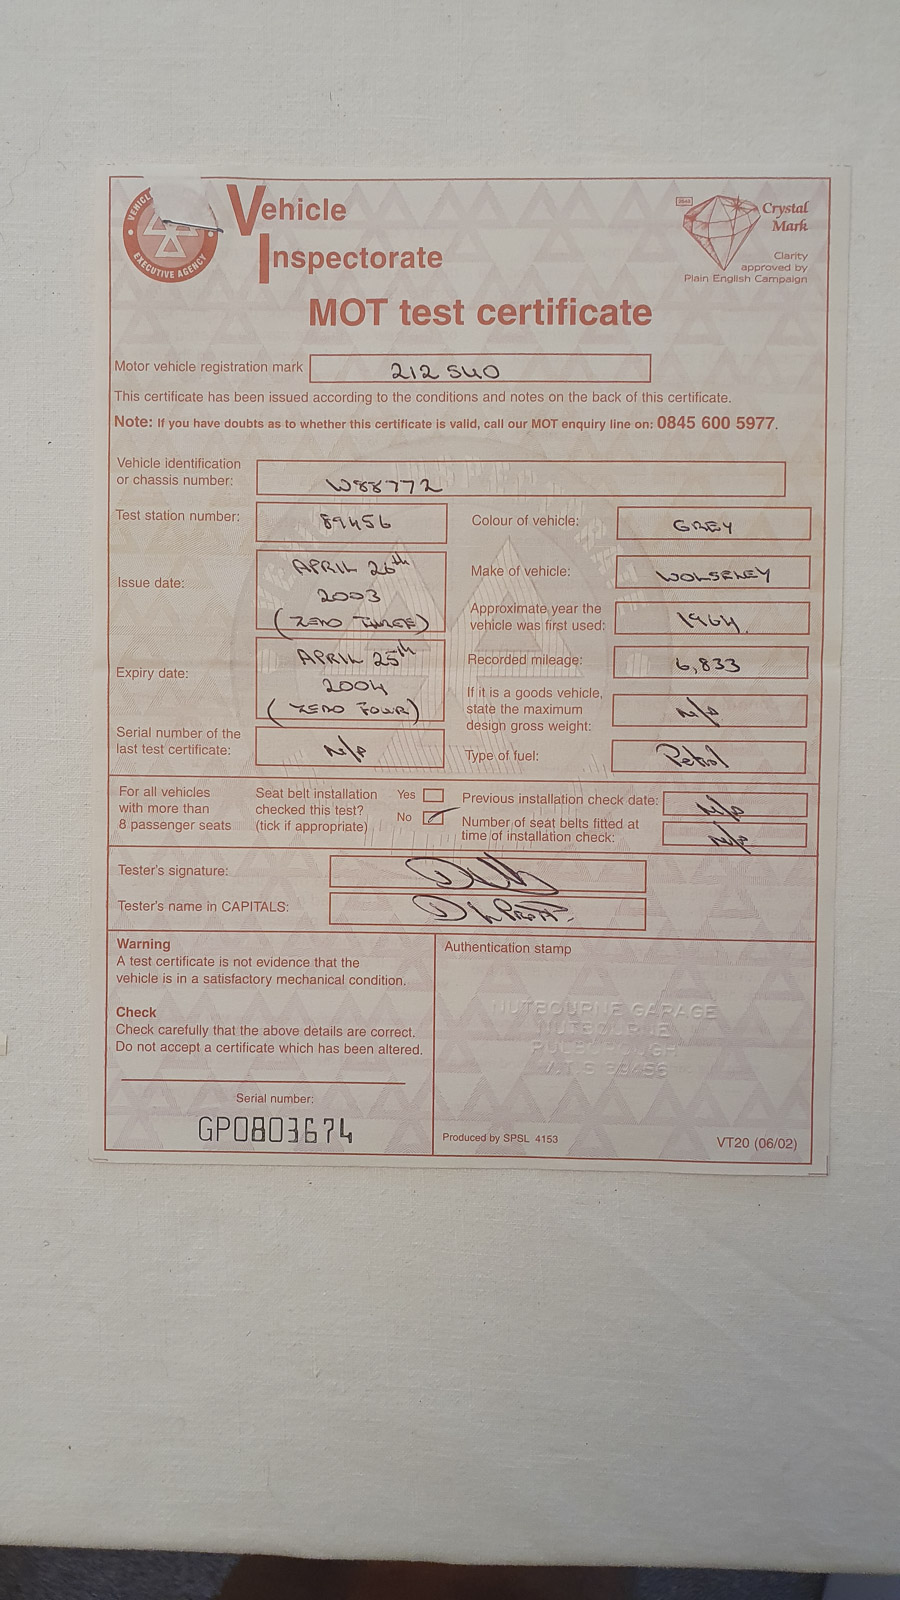 VEHICLE
EXECUTIVE AGENCY
Vehicle
Inspectorate
Crystal
Mark
Clarity
approved by
Plain English Campaign
MOT test certificate
Motor vehicle registration mark 212 SUO
This certificate has been issued according to the conditions and notes on the back of this certificate.
Note: If you have doubts as to whether this certificate is valid, call our MOT enquiry line on: 0845 600 5977.
Vehicle identification
or chassis number: W88772
Test station number: 89456
Colour of vehicle: GREY
Issue date: APRIL 26th
2003
(ZERO THREE)
Make of vehicle: WOLSELEY
Approximate year the
vehicle was first used: 1964.
Expiry date: APRIL 25th
2004
(ZERO FOUR)
Recorded mileage: 6,833
If it is a goods vehicle,
state the maximum
design gross weight: N/A
Serial number of the
last test certificate: N/A
Type of fuel: Petrol
For all vehicles
with more than
8 passenger seats
Seat belt installation
checked this test?
(tick if appropriate)
Yes
No
Previous installation check date: N/A
Number of seat belts fitted at
time of installation check: N/A
Tester's signature:
Tester's name in CAPITALS:
Warning
A test certificate is not evidence that the
vehicle is in a satisfactory mechanical condition.
Check
Check carefully that the above details are correct.
Do not accept a certificate which has been altered.
Serial number:
GP0803674
Authentication stamp
NUTBOURNE GARAGE
NUTBOURNE
PULBOROUGH
Produced by SPSL 4153
VT20 (06/02)